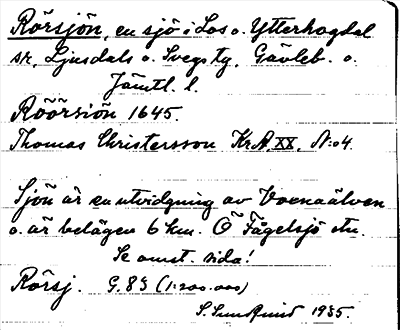 Rörsjön, en sjö i Los o. Ytterhogdal
sr, Ljusdals o. Svegs tg, Gävleb. o.
Jämtl. l.
Röörsiön 1645.
Thomas Christersson KrA, XX, N:o 4.
Sjön är en utvidgning av Voxnaälven
o. är belägen 6 km. Ö Fågelsjö stn.
Se omst. sida!
Rörsj. G. 83 (1:200.000)
S. Sundlund 1935.